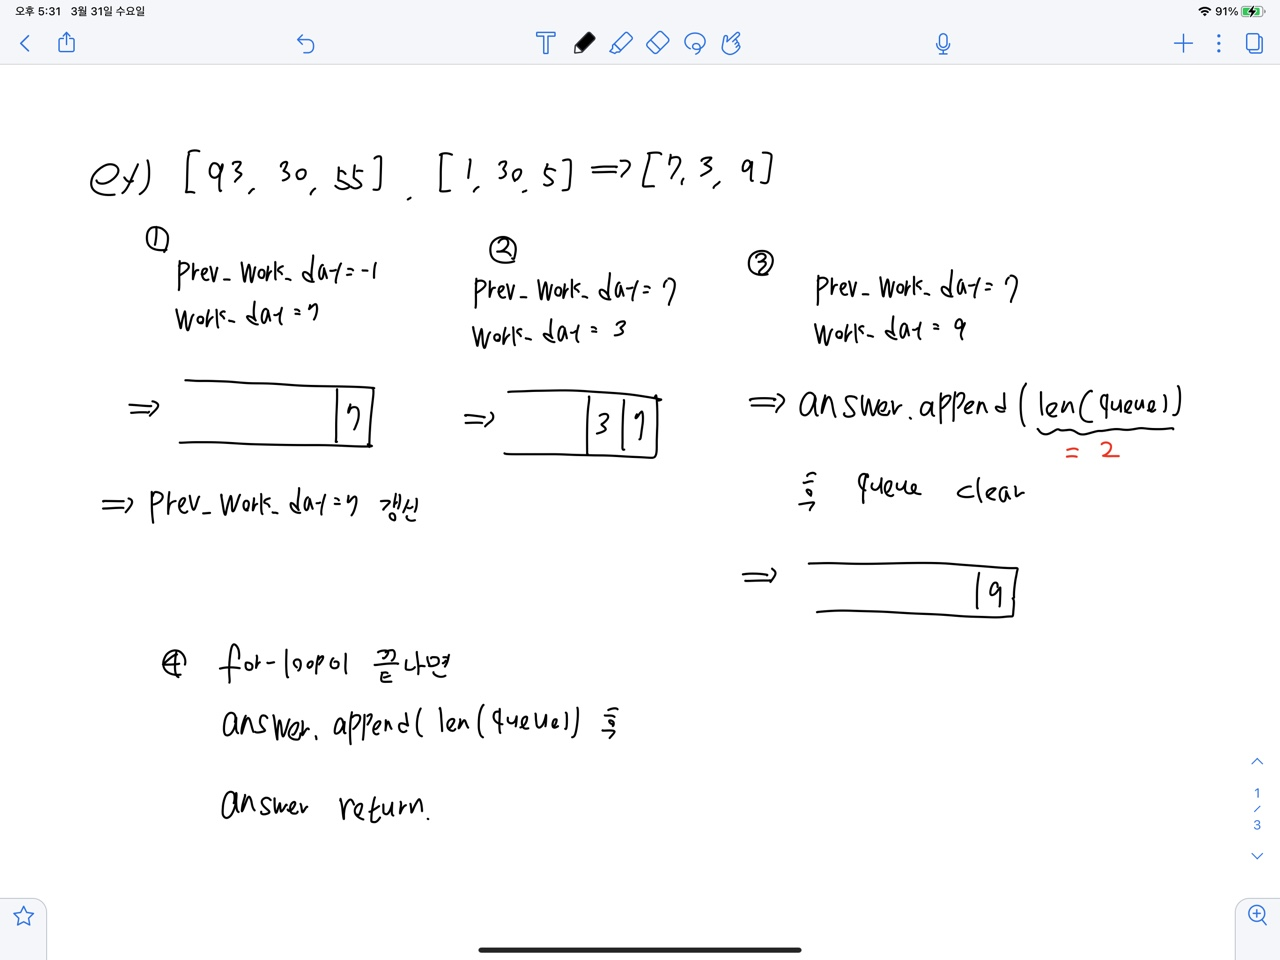 오후 5:31 3월 31일 수요일
91%
ex) [93, 30, 55], [1, 30, 5] => [7, 3, 9]
①
prev_work_day=-1
work_day=7
=> 7
=> prev_work_day=7 갱신
②
prev_work_day=7
work_day=3
=> 3 7
③
prev_work_day=7
work_day=9
=> answer.append(len(queue))
=2
후 queue clear
=> 9
④ for-loop이 끝나면
answer.append(len(queue)) 후
answer return.
1
/
3